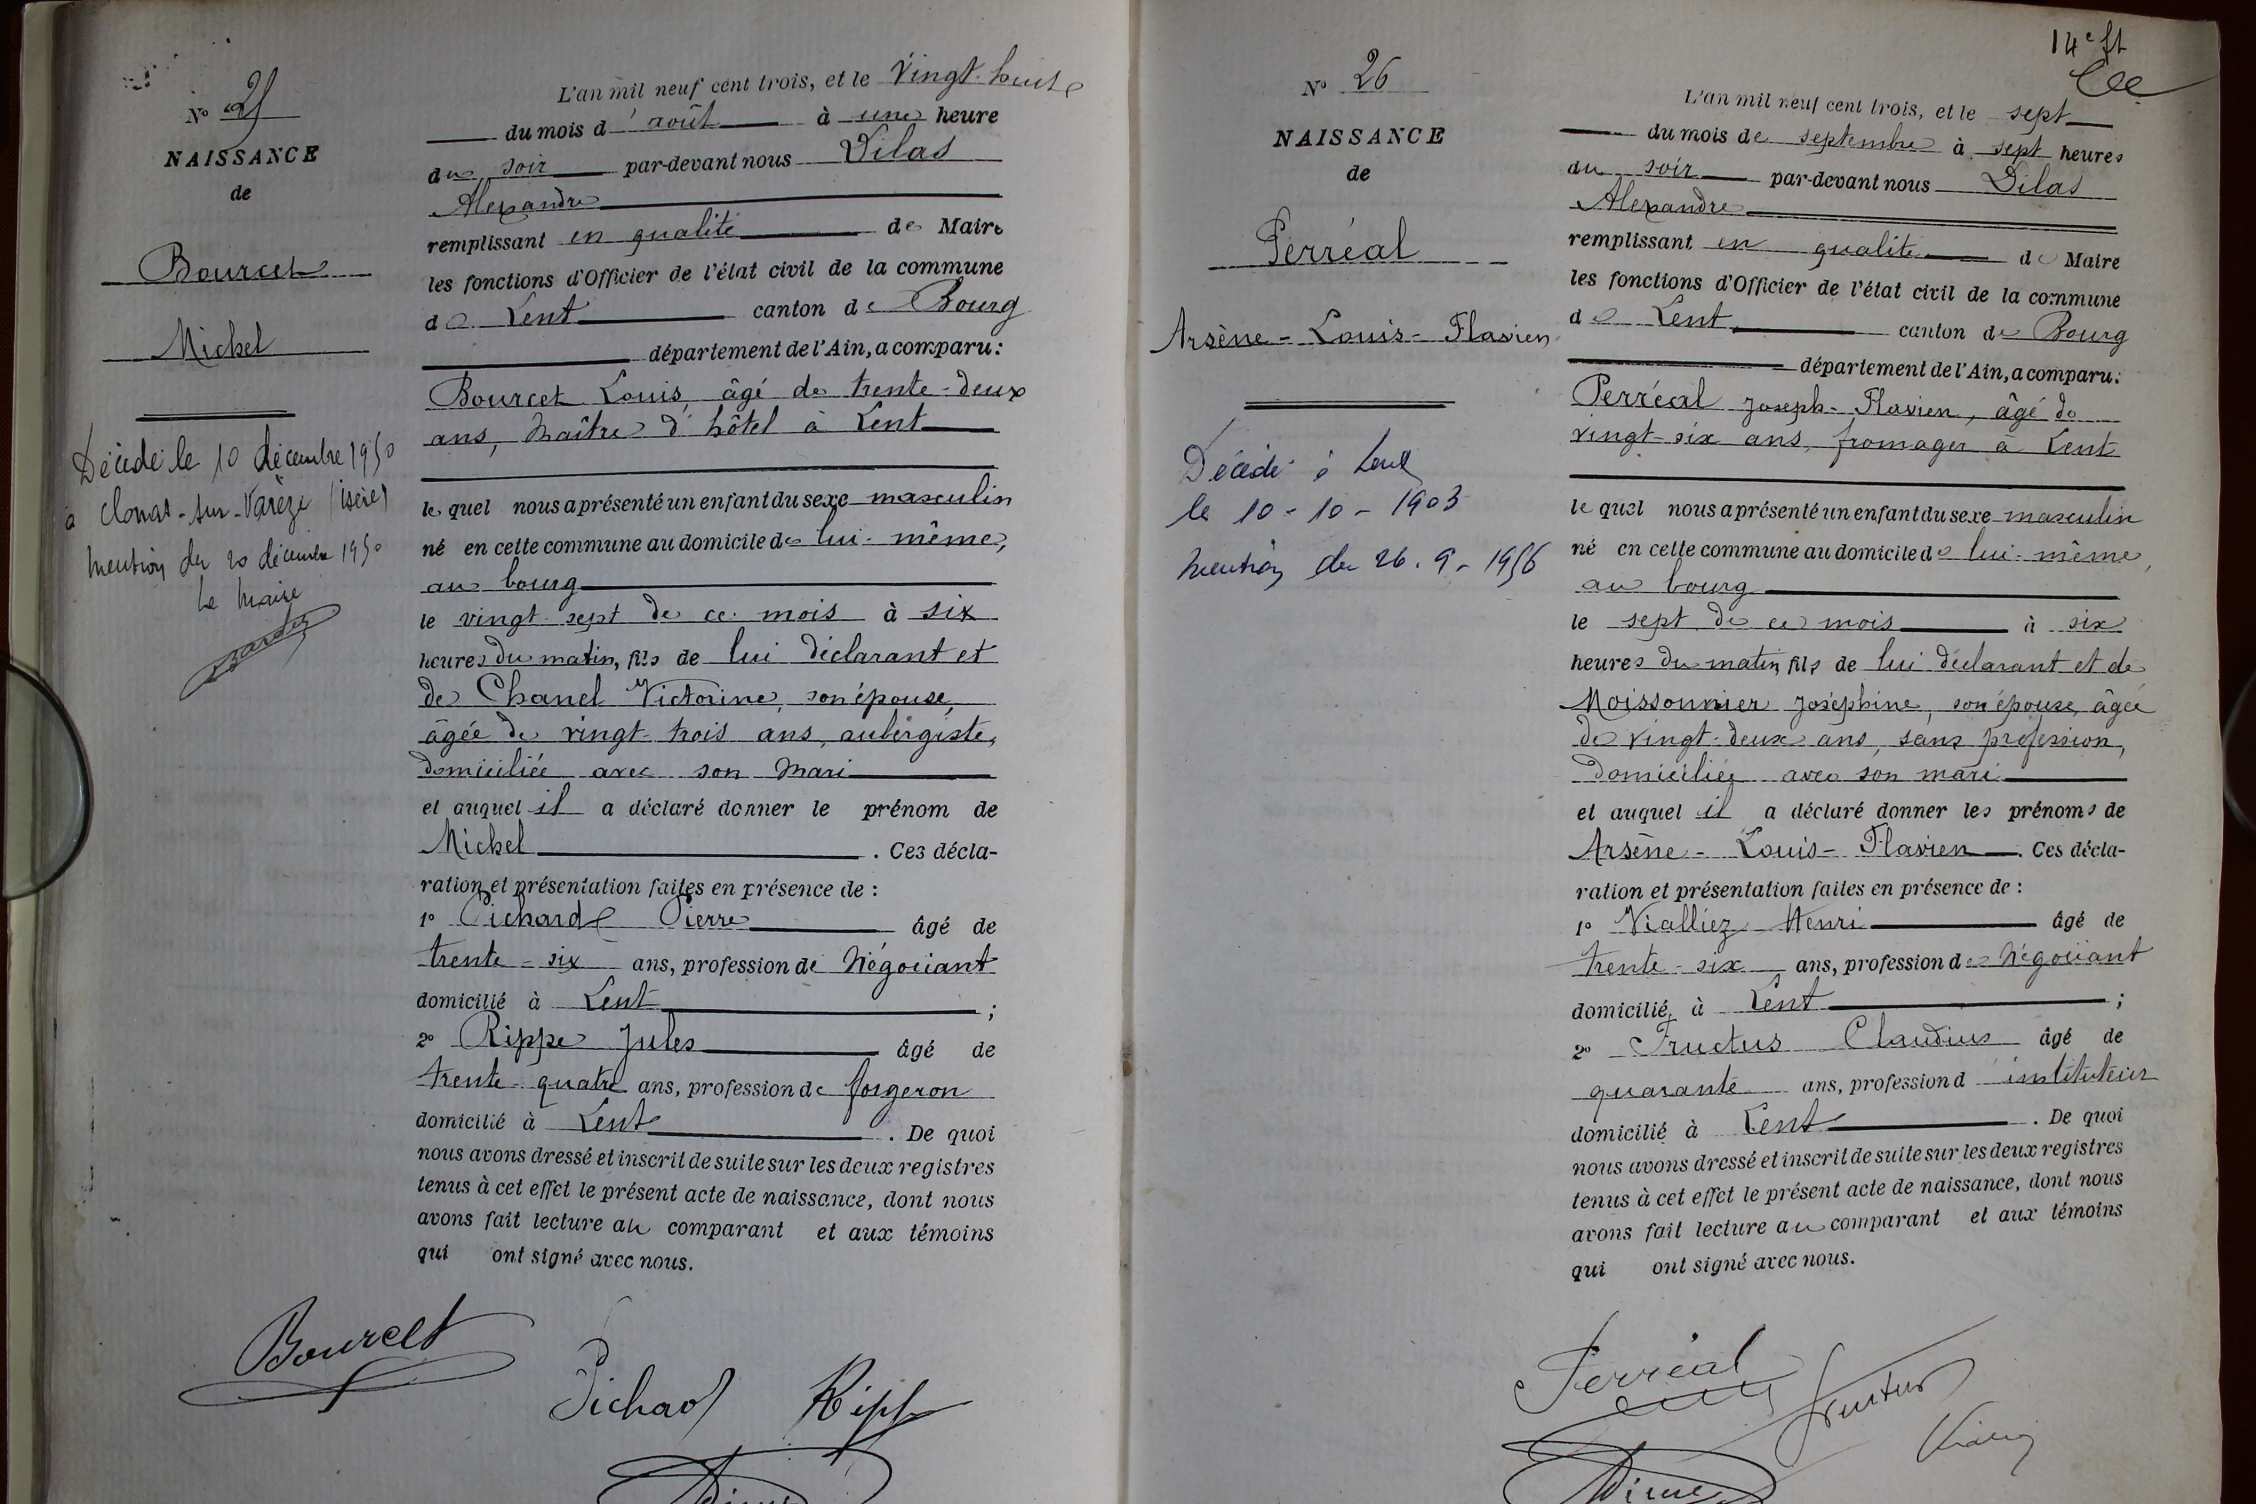 N° 25
NAISSANCE
de
Bourcet
Michel
Décédé le 10 décembre 1950
à Clonas-sur-Varèze (Isère)
mention du 20 décembre 1950
Le Maire
L'an mil neuf cent trois, et le vingt-huit
du mois d'août à une heure
du soir par-devant nous Dilas
Alexandre
remplissant en qualité de Maire
les fonctions d'Officier de l'état civil de la commune
de Lent canton de Bourg
département de l'Ain, a comparu :
Bourcet Louis, âgé de trente-deux
ans, Maître d'hôtel à Lent
lequel nous a présenté un enfant du sexe masculin
né en cette commune au domicile de lui-même,
au bourg
le vingt-sept de ce mois à six
heures du matin, fils de lui déclarant et
de Chanel Victorine, son épouse,
âgée de vingt-trois ans, aubergiste,
domiciliée avec son mari
et auquel il a déclaré donner le prénom de
Michel. Ces décla-
ration et présentation faites en présence de :
1° Pichard Pierre âgé de
trente-six ans, profession de Négociant
domicilié à Lent ;
2° Rippe Jules âgé de
trente-quatre ans, profession de forgeron
domicilié à Lent. De quoi
nous avons dressé et inscrit de suite sur les deux registres
tenus à cet effet le présent acte de naissance, dont nous
avons fait lecture au comparant et aux témoins
qui ont signé avec nous.
Bourcet
Pichard Ripp
14e ft
N° 26
NAISSANCE
de
Perréal
Arsène-Louis-Flavien
Décédé à Lent
le 10-10-1903
mention du 26.9-1956
L'an mil neuf cent trois, et le sept
du mois de septembre à sept heures
du soir par-devant nous Dilas
Alexandre
remplissant en qualité de Maire
les fonctions d'Officier de l'état civil de la commune
de Lent canton de Bourg
département de l'Ain, a comparu :
Perréal Joseph-Flavien, âgé de
vingt-six ans, fromager à Lent
lequel nous a présenté un enfant du sexe masculin
né en cette commune au domicile de lui-même,
au bourg
le sept de ce mois à six
heures du matin, fils de lui déclarant et de
Moissonnier Joséphine, son épouse, âgée
de vingt-deux ans, sans profession,
domiciliée avec son mari
et auquel il a déclaré donner les prénoms de
Arsène-Louis-Flavien. Ces décla-
ration et présentation faites en présence de :
1° Vialliez Henri âgé de
trente-six ans, profession de Négociant
domicilié à Lent ;
2° Fructus Claudius âgé de
quarante ans, profession d'instituteur
domicilié à Lent. De quoi
nous avons dressé et inscrit de suite sur les deux registres
tenus à cet effet le présent acte de naissance, dont nous
avons fait lecture au comparant et aux témoins
qui ont signé avec nous.
Perréal
Fructus